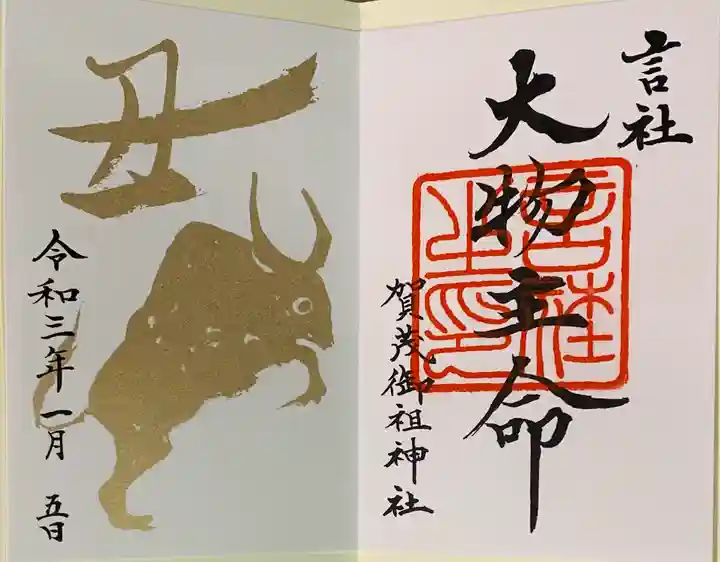 言社
大物主命
賀茂御祖神社
言社之印
丑
令和三年一月 五日